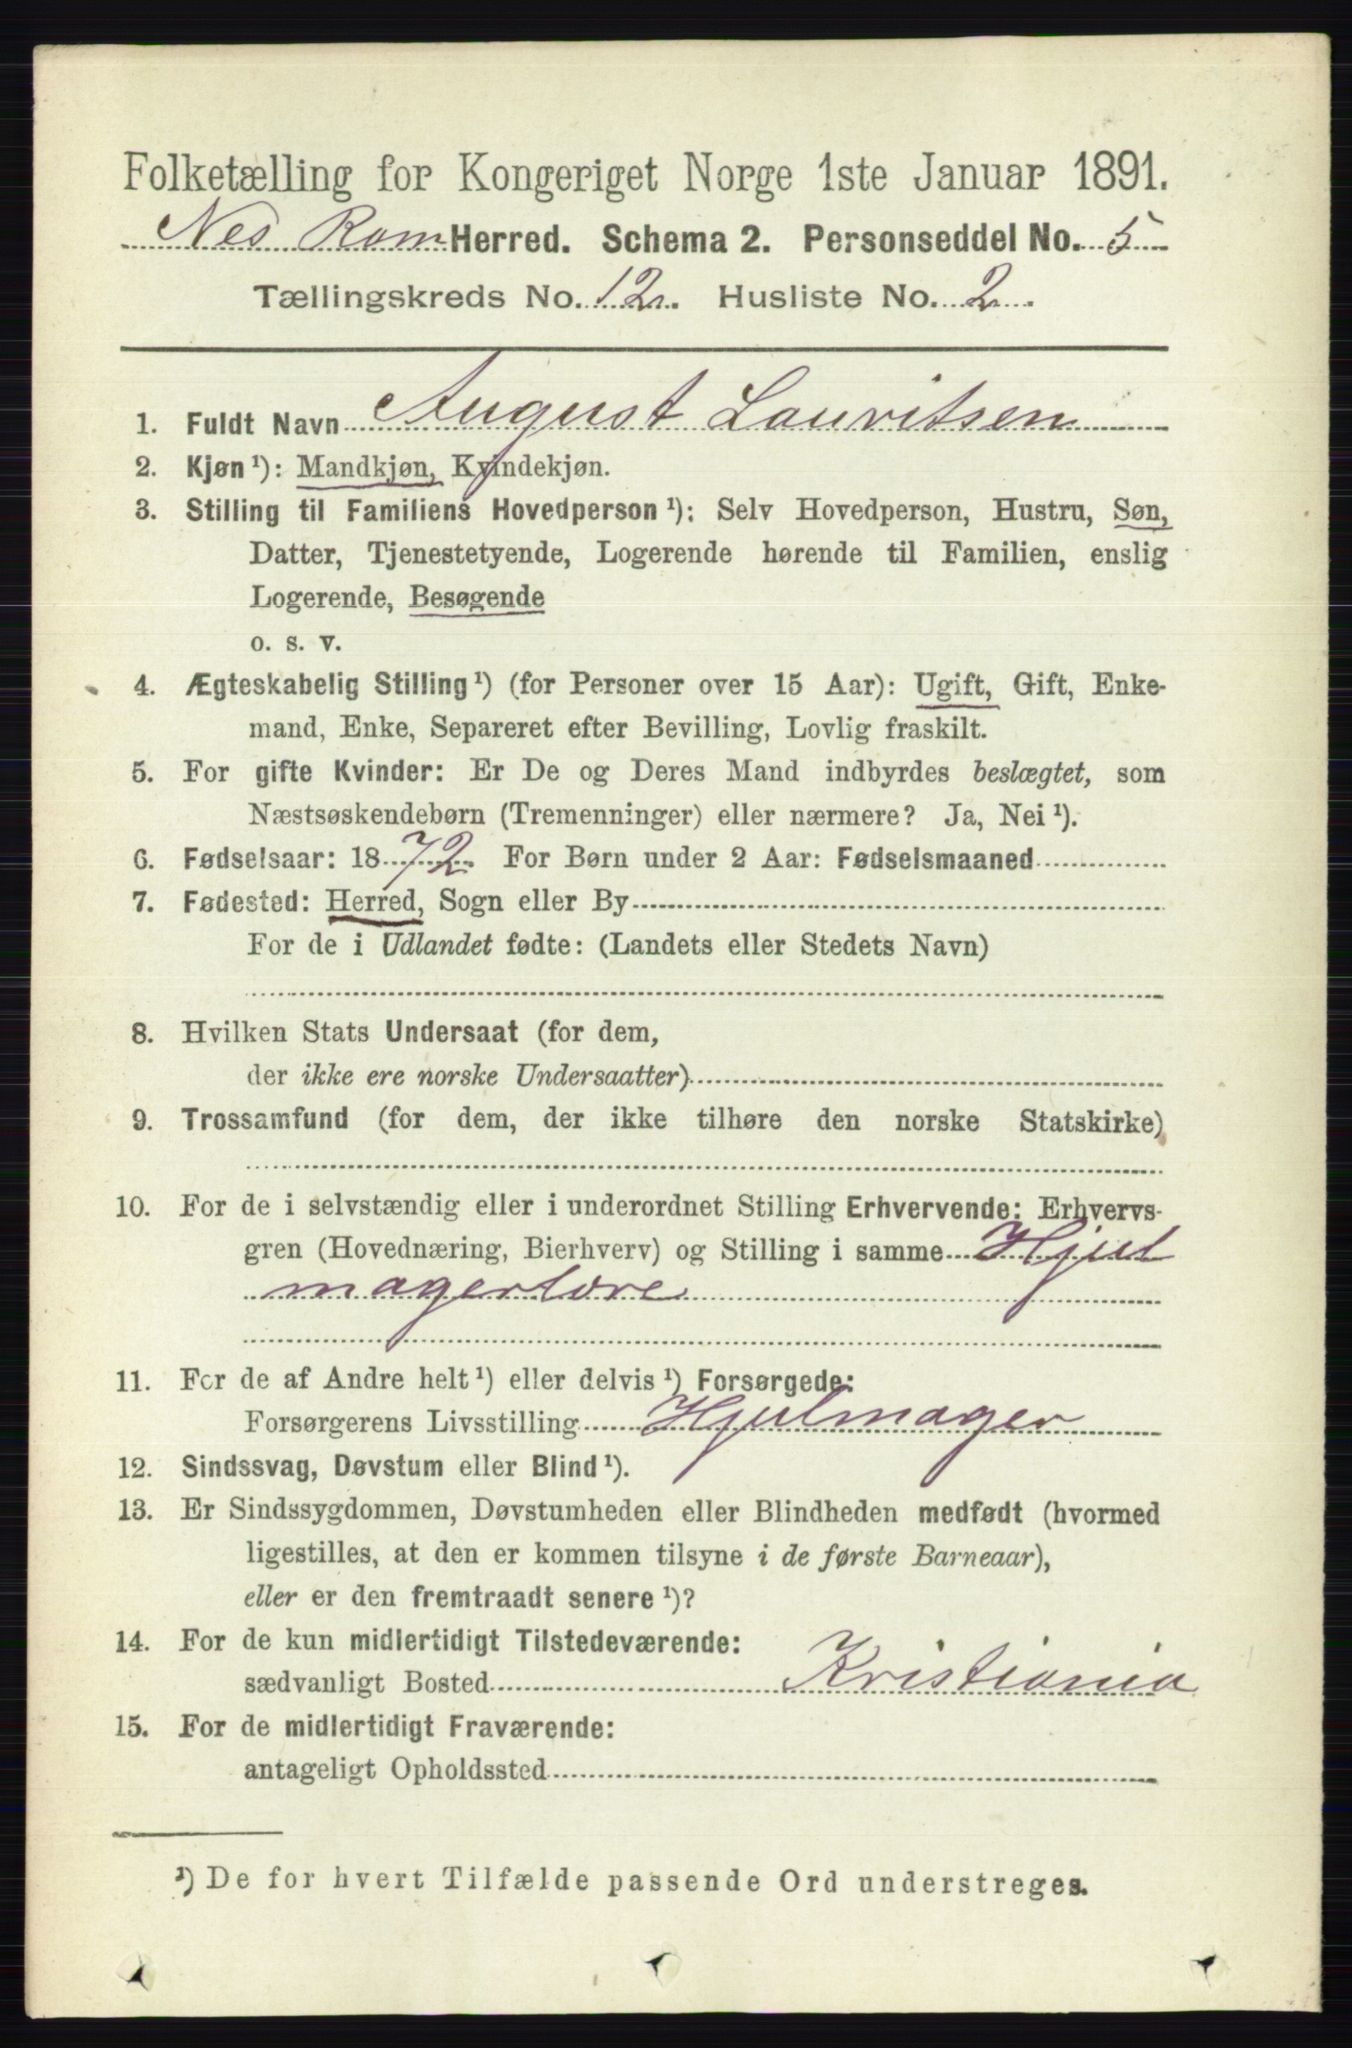 Folketælling for Kongeriget Norge 1ste Januar 1891.
Nes Rom Herred. Schema 2. Personseddel No. 5
Tællingskreds No. 12. Husliste No. 2
1. Fuldt Navn August Lauritsen
2. Kjøn ¹): Mandkjøn, Kvindekjøn.
3. Stilling til Familiens Hovedperson ¹): Selv Hovedperson, Hustru, Søn,
Datter, Tjenestetyende, Logerende hørende til Familien, enslig
Logerende, Besøgende
o. s. v.
4. Ægteskabelig Stilling ¹) (for Personer over 15 Aar): Ugift, Gift, Enke-
mand, Enke, Separeret efter Bevilling, Lovlig fraskilt.
5. For gifte Kvinder: Er De og Deres Mand indbyrdes beslægtet, som
Næstsøskendebørn (Tremenninger) eller nærmere? Ja, Nei ¹).
6. Fødselsaar: 1872 For Børn under 2 Aar: Fødselsmaaned
7. Fødested: Herred, Sogn eller By
For de i Udlandet fødte: (Landets eller Stedets Navn)
8. Hvilken Stats Undersaat (for dem,
der ikke ere norske Undersaatter)
9. Trossamfund (for dem, der ikke tilhøre den norske Statskirke)
10. For de i selvstændig eller i underordnet Stilling Erhvervende: Erhvervs-
gren (Hovednæring, Bierhverv) og Stilling i samme Hjul
magerlære
11. For de af Andre helt ¹) eller delvis ¹) Forsørgede:
Forsørgerens Livsstilling Hjulmager
12. Sindssvag, Døvstum eller Blind ¹).
13. Er Sindssygdommen, Døvstumheden eller Blindheden medfødt (hvormed
ligestilles, at den er kommen tilsyne i de første Barneaar),
eller er den fremtraadt senere ¹)?
14. For de kun midlertidigt Tilstedeværende:
sædvanligt Bosted Kristiania
15. For de midlertidigt Fraværende:
antageligt Opholdssted
¹) De for hvert Tilfælde passende Ord understreges.